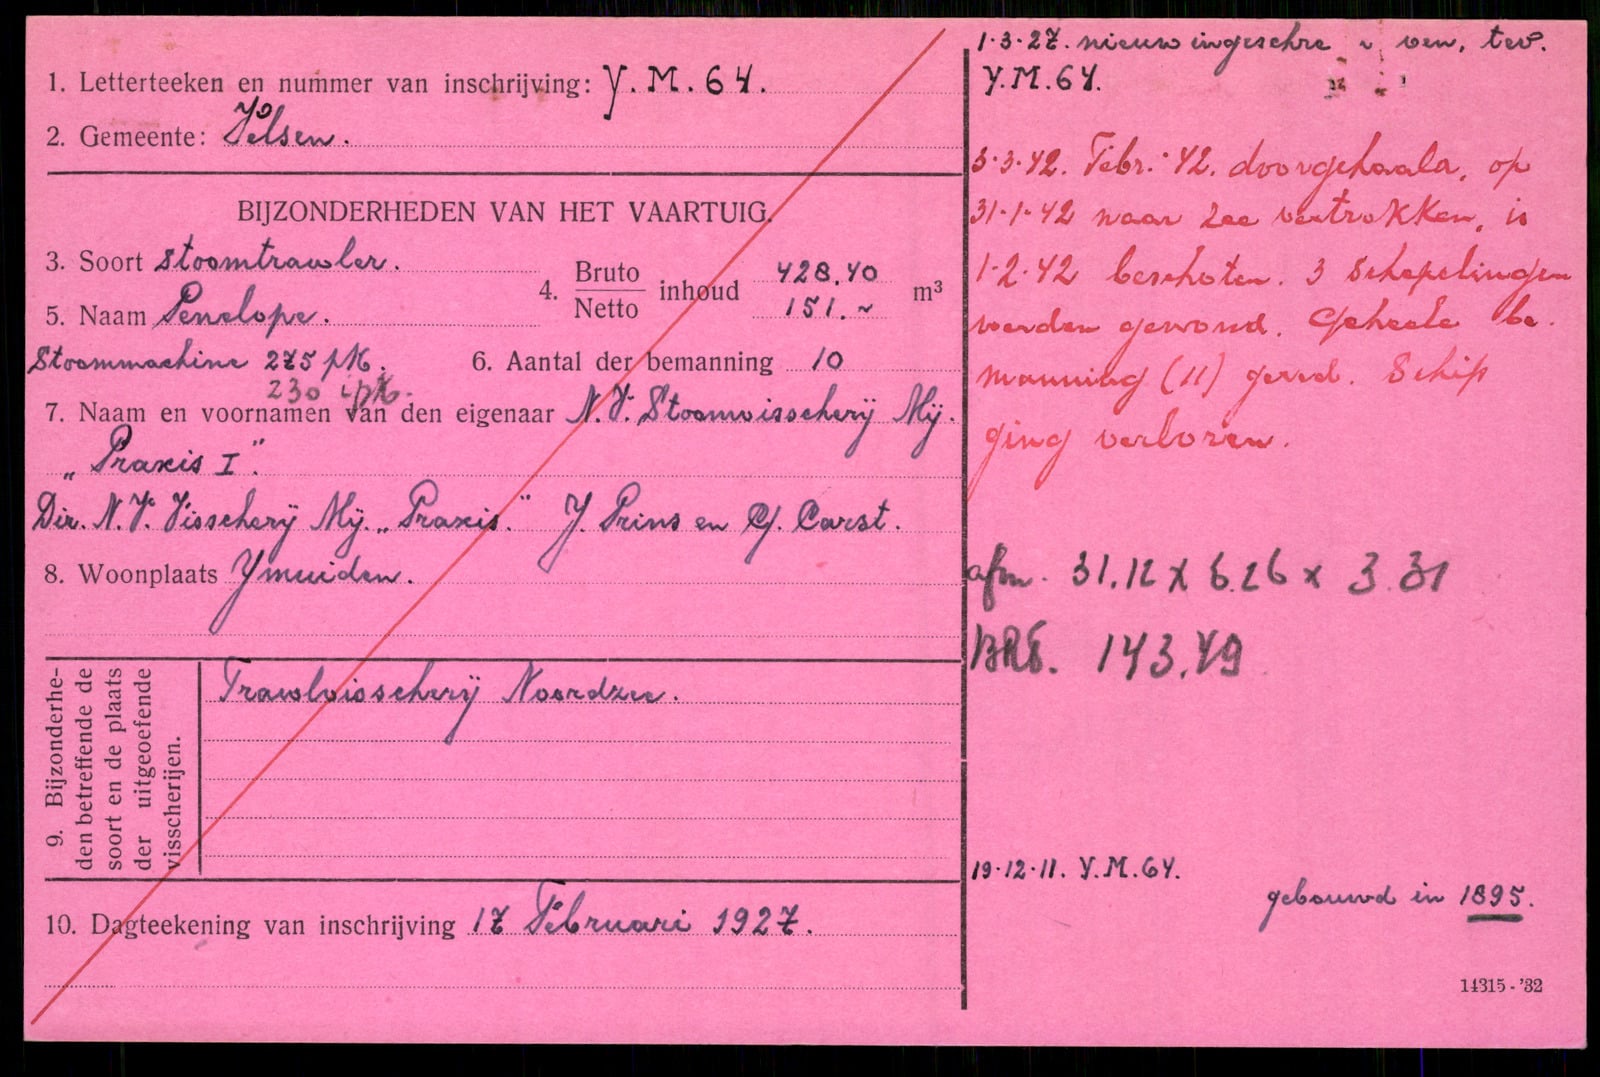 1. Letterteeken en nummer van inschrijving: Y.M.64.
2. Gemeente: Velsen.
BIJZONDERHEDEN VAN HET VAARTUIG.
3. Soort stoomtrawler.
4. Bruto inhoud 428.40 m³
Netto 151.~
5. Naam Penelope.
Stoommachine 275 pk.
230 ipk.
6. Aantal der bemanning 10
7. Naam en voornamen van den eigenaar N.V. Stoomvisscherij Mij.
„Praxis I”.
Dir. N.V. Visscherij Mij. „Praxis.” J. Prins en C. Carst.
8. Woonplaats Ymuiden.
9. Bijzonderhe-
den betreffende de
soort en de plaats
der uitgeoefende
visscherijen.
Trawlvisscherij Noordzee.
10. Dagteekening van inschrijving 17 Februari 1927.
1.3.27. nieuw ingeschreven, tev.
Y.M.64.
5.3.42. Febr. '42. doorgehaald, op
31.1.42 naar zee vertrokken, is
1.2.42 beschoten. 3 Schepelingen
werden gewond. Geheele be-
manning (11) gered. Schip
ging verloren.
afm. 31.12 x 6.26 x 3.31
BRT. 143.49
19.12.11. Y.M.64.
gebouwd in 1895.
14315 - '32